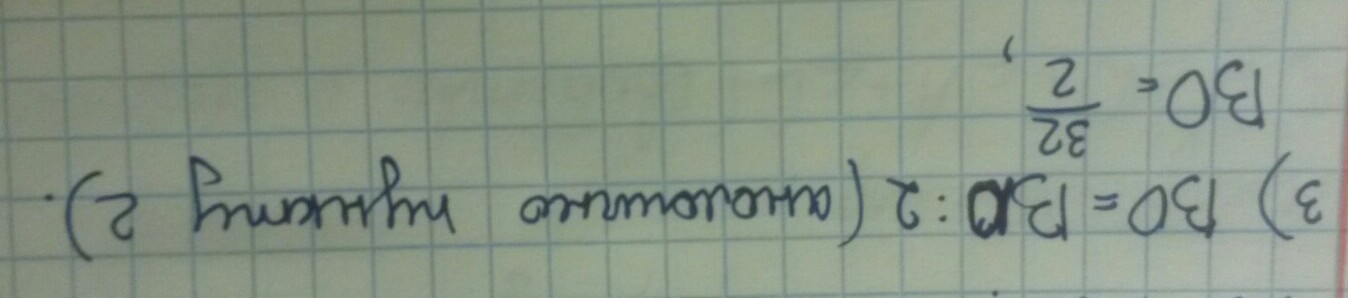 3) BO = BD : 2 (аналогично пункту 2).
BO = 32/2,